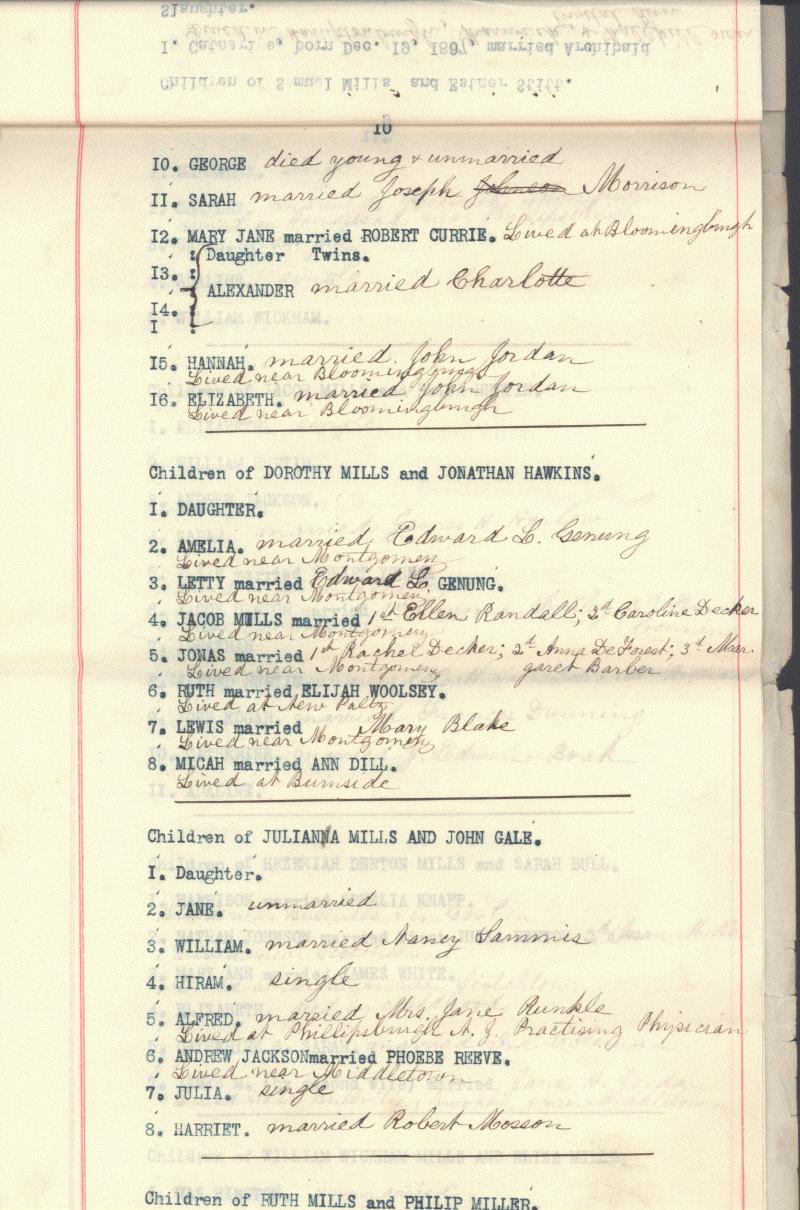 Slaughter.
I. Catharine, born Dec. 19, 1807, married Archibald
Children of Samuel Mills and Esther Stitt.
10
10. GEORGE died young & unmarried
11. SARAH married Joseph Johnson Morrison
12. MARY JANE married ROBERT CURRIE. Lived at Bloomingburgh
Daughter Twins.
13.
ALEXANDER married Charlotte
14.
I
15. HANNAH. married. John Jordan
Lived near Bloomingburgh
16. ELIZABETH. married John Jordan
Lived near Bloomingburgh
Children of DOROTHY MILLS and JONATHAN HAWKINS.
I. DAUGHTER.
2. AMELIA. married Edward L. Genung
Lived near Montgomery
3. LETTY married Edward L. GENUNG.
Lived near Montgomery
4. JACOB MILLS married 1st Ellen Randall; 2d Caroline Decker
Lived near Montgomery
5. JONAS married 1st Rachel Decker; 2d Anna DeForest; 3d Mar-
Lived near Montgomery garet Barber
6. RUTH married ELIJAH WOOLSEY.
Lived at New Paltz
7. LEWIS married Mary Blake
Lived near Montgomery
8. MICAH married ANN DILL.
Lived at Burnside
Children of JULIANNA MILLS AND JOHN GALE.
I. Daughter.
2. JANE. unmarried
3. WILLIAM. married Nancy Sammis
4. HIRAM. single
5. ALFRED. married Mrs. Jane Runkle
Lived at Phillipsburgh N. J. Practising Physician
6. ANDREW JACKSONmarried PHOEBE REEVE.
Lived near Middletown
7. JULIA. single
8. HARRIET. married Robert Mosson
Children of RUTH MILLS and PHILIP MILLER.